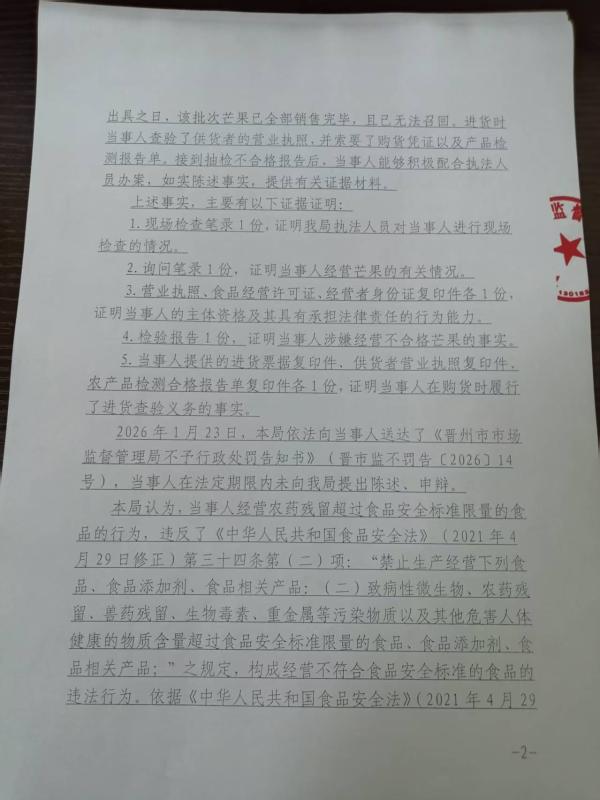 出具之日，该批次芒果已全部销售完毕，且已无法召回。进货时
当事人查验了供货者的营业执照，并索要了购货凭证以及产品检
测报告单。接到抽检不合格报告后，当事人能够积极配合执法人
员办案，如实陈述事实，提供有关证据材料。
上述事实，主要有以下证据证明：
1.现场检查笔录1份，证明我局执法人员对当事人进行现场
检查的情况。
2.询问笔录1份，证明当事人经营芒果的有关情况。
3.营业执照、食品经营许可证、经营者身份证复印件各1份，
证明当事人的主体资格及其具有承担法律责任的行为能力。
4.检验报告1份，证明当事人涉嫌经营不合格芒果的事实。
5.当事人提供的进货票据复印件、供货者营业执照复印件、
农产品检测合格报告单复印件各1份，证明当事人在购货时履行
了进货查验义务的事实。
2026年1月23日，本局依法向当事人送达了《晋州市市场
监督管理局不予行政处罚告知书》（晋市监不罚告〔2026〕14
号），当事人在法定期限内未向我局提出陈述、申辩。
本局认为，当事人经营农药残留超过食品安全标准限量的食
品的行为，违反了《中华人民共和国食品安全法》（2021年4
月29日修正）第三十四条第（二）项：“禁止生产经营下列食
品、食品添加剂、食品相关产品：（二）致病性微生物、农药残
留、兽药残留、生物毒素、重金属等污染物质以及其他危害人体
健康的物质含量超过食品安全标准限量的食品、食品添加剂、食
品相关产品；”之规定，构成经营不符合食品安全标准的食品的
违法行为。依据《中华人民共和国食品安全法》（2021年4月29
-2-